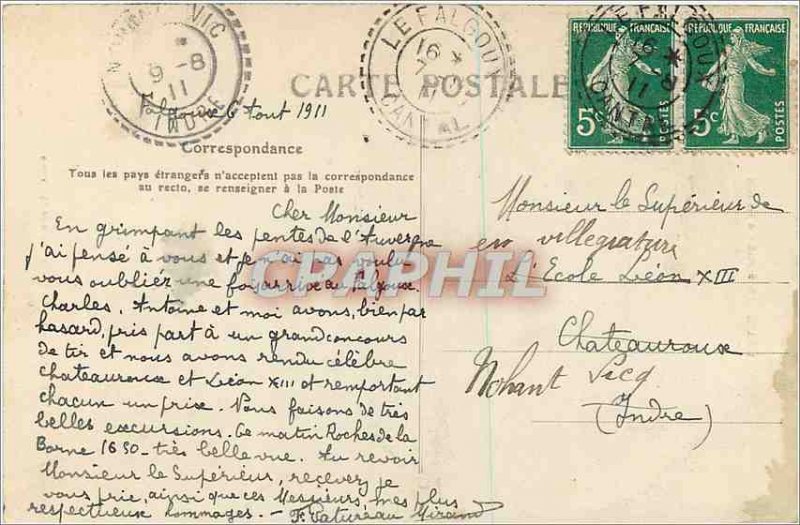 NOHANT VIC
9-8
11
INDRE
LE FALGOUX
16 *
CANTAL
LE FALGOUX
16 *
7 8
11
CANTAL
REPUBLIQUE FRANÇAISE
5c
POSTES
REPUBLIQUE FRANÇAISE
5c
POSTES
CARTE POSTALE
Falgoux 6 Aout 1911
Correspondance
Tous les pays étrangers n'acceptent pas la correspondance
au recto, se renseigner à la Poste
Cher Monsieur
En grimpant les pentes de l'Auvergne
j'ai pensé à vous et je n'ai pas voulu
vous oubliez une fois arrive au Falgoux.
Charles, Antoine et moi avons, bien par
hasard, pris part à un grand concours
de tir et nous avons rendu célèbre
Chateauroux et Léon XIII et remportant
chacun un prix. Nous faisons de très
belles excursions. Ce matin Roches de la
Borne 1650 - très belle vue. Au revoir
Monsieur le Supérieur, recevez je
vous prie, ainsi que ces Messieurs, mes plus
respectueux hommages. -
CPAPHIL
Monsieur le Supérieur de
en villegiature
L'Ecole Léon XIII
Chateauroux
Nohant Vicq
(Indre)